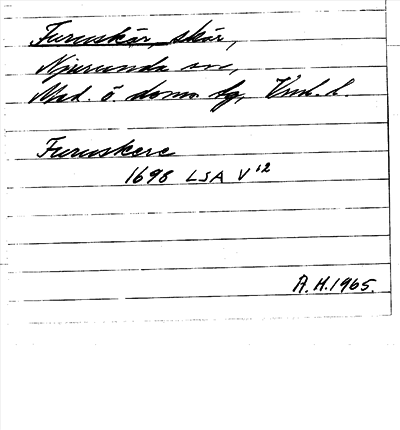 Furuskär, skär,
Njurunda sn,
Med. ö. doms. tg, Vnl. l.
Furuskere
1698 LSA V 12
A.H. 1965.